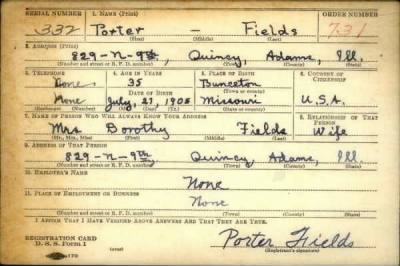 SERIAL NUMBER 1. NAME (Print) ORDER NUMBER
332 Porter — Fields 731
(First) (Middle) (Last)
2. ADDRESS (Print)
829-N-9th, Quincy, Adams, Ill.
(Number and street or R. F. D. number) (Town) (County) (State)
3. TELEPHONE 4. AGE IN YEARS 5. PLACE OF BIRTH 6. COUNTRY OF CITIZENSHIP
None 35 Bunceton
DATE OF BIRTH (Town or county)
None July, 21, 1905 Missouri U.S.A.
(Mo.) (Day) (Yr.) (State or country)
7. NAME OF PERSON WHO WILL ALWAYS KNOW YOUR ADDRESS 8. RELATIONSHIP OF THAT PERSON
Mrs Dorothy Fields Wife
(Mr., Mrs., Miss) (First) (Middle) (Last)
9. ADDRESS OF THAT PERSON
829-N-9th, Quincy, Adams, Ill.
(Number and street or R. F. D. number) (Town) (County) (State)
10. EMPLOYER'S NAME
None
11. PLACE OF EMPLOYMENT OR BUSINESS
None
(Number and street or R. F. D. number) (Town) (County) (State)
I AFFIRM THAT I HAVE VERIFIED ABOVE ANSWERS AND THAT THEY ARE TRUE.
REGISTRATION CARD
D. S. S. Form 1 Porter Fields
(Registrant's signature)